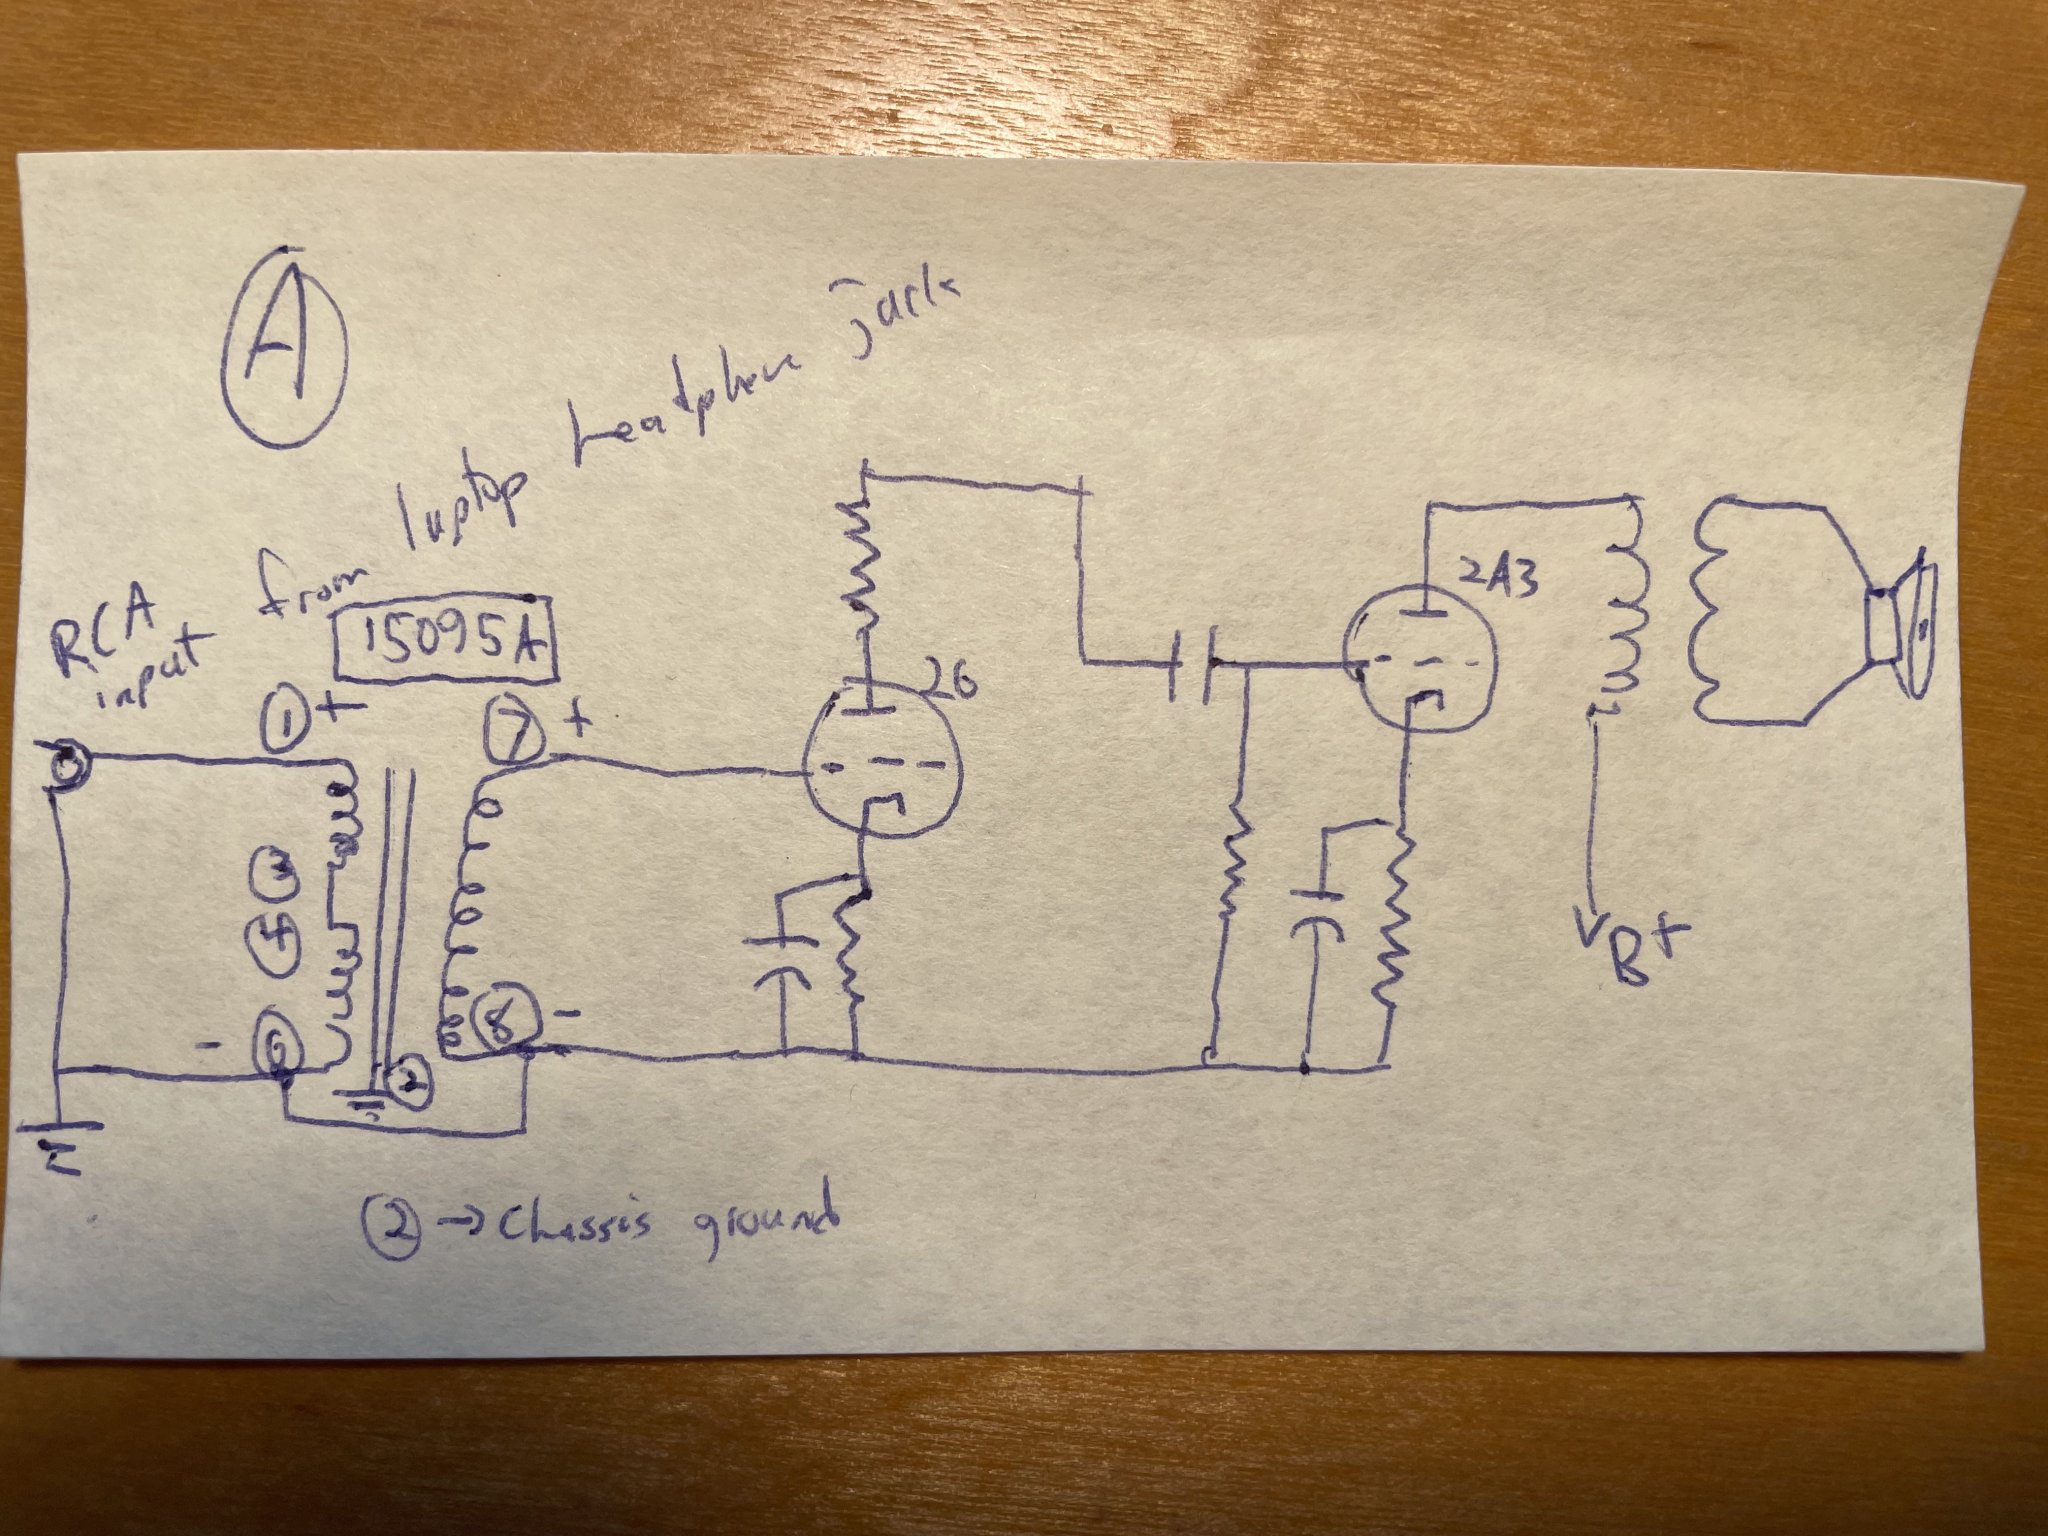 A
RCA input from laptop headphone jack
15095A
1 +
7 +
26
2A3
3
4
- 6
2
8 -
B+
2 → Chassis ground